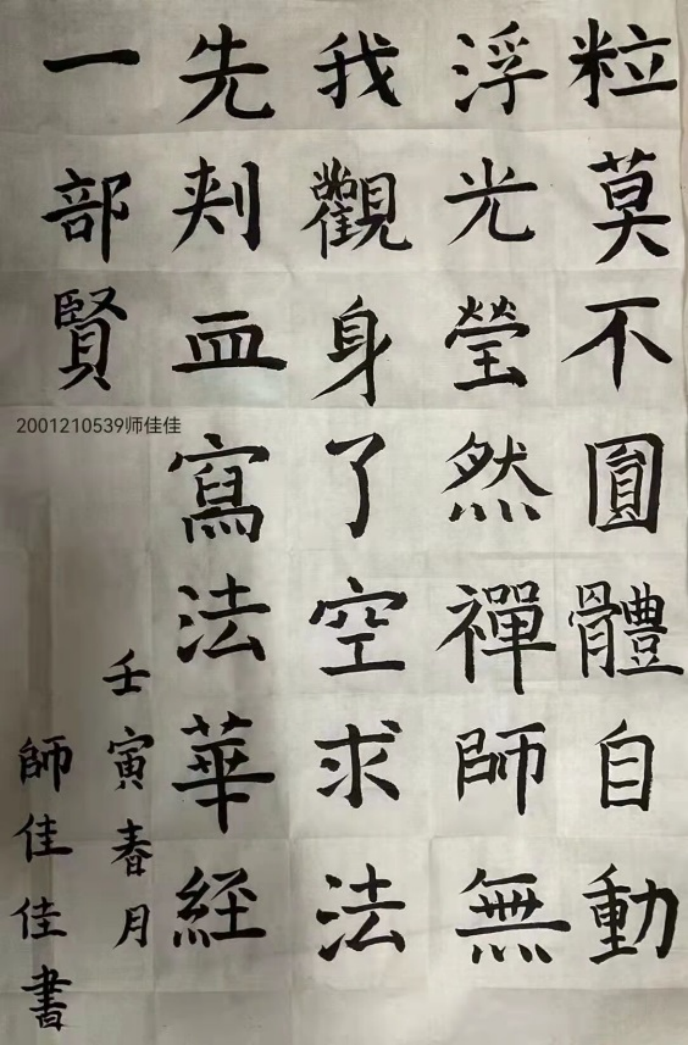 粒莫不圓體自動
浮光瑩然禪師無
我觀身了空求法
先刾血寫法華経
一部賢
2001210539师佳佳
壬寅春月
師佳佳書